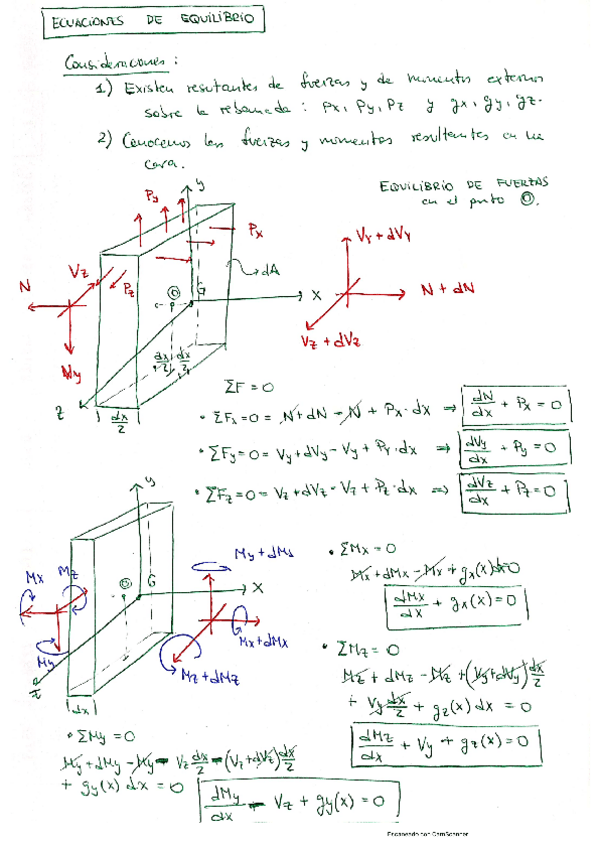 ECUACIONES DE EQUILIBRIO
Consideraciones:
1) Existen resultantes de fuerzas y de momentos externos
sobre la rebanada: Px, Py, Pz y gx, gy, gz.
2) Conocemos las fuerzas y momentos resultantes en una
cara.
EQUILIBRIO DE FUERZAS
en el punto O.
y
Py
Px
Vy + dVy
dA
Vz
N
Pz
O
G
X
N + dN
Vz + dVz
dx/2 dx/2
z
dx/2
ΣF = 0
• ΣFx = 0 = N + dN - N + Px · dx ⇒ dN/dx + Px = 0
• ΣFy = 0 = Vy + dVy - Vy + Py · dx ⇒ dVy/dx + Py = 0
• ΣFz = 0 = Vz + dVz - Vz + Pz · dx ⇒ dVz/dx + Pz = 0
y
My + dMy
Mx
Mz
O
G
X
My
Mx + dMx
Mz + dMz
z
dx
• ΣMx = 0
Mx + dMx - Mx + gx(x)dx=0
dMx/dx + gx(x) = 0
• ΣMz = 0
Mz + dMz - Mz + (Vy+dVy) dx/2
+ Vy dx/2 + gz(x) dx = 0
dMz/dx + Vy + gz(x) = 0
• ΣMy = 0
My + dMy - My - Vz dx/2 - (Vz + dVz) dx/2
+ gy(x) dx = 0
dMy/dx - Vz + gy(x) = 0
Escaneado con CamScanner